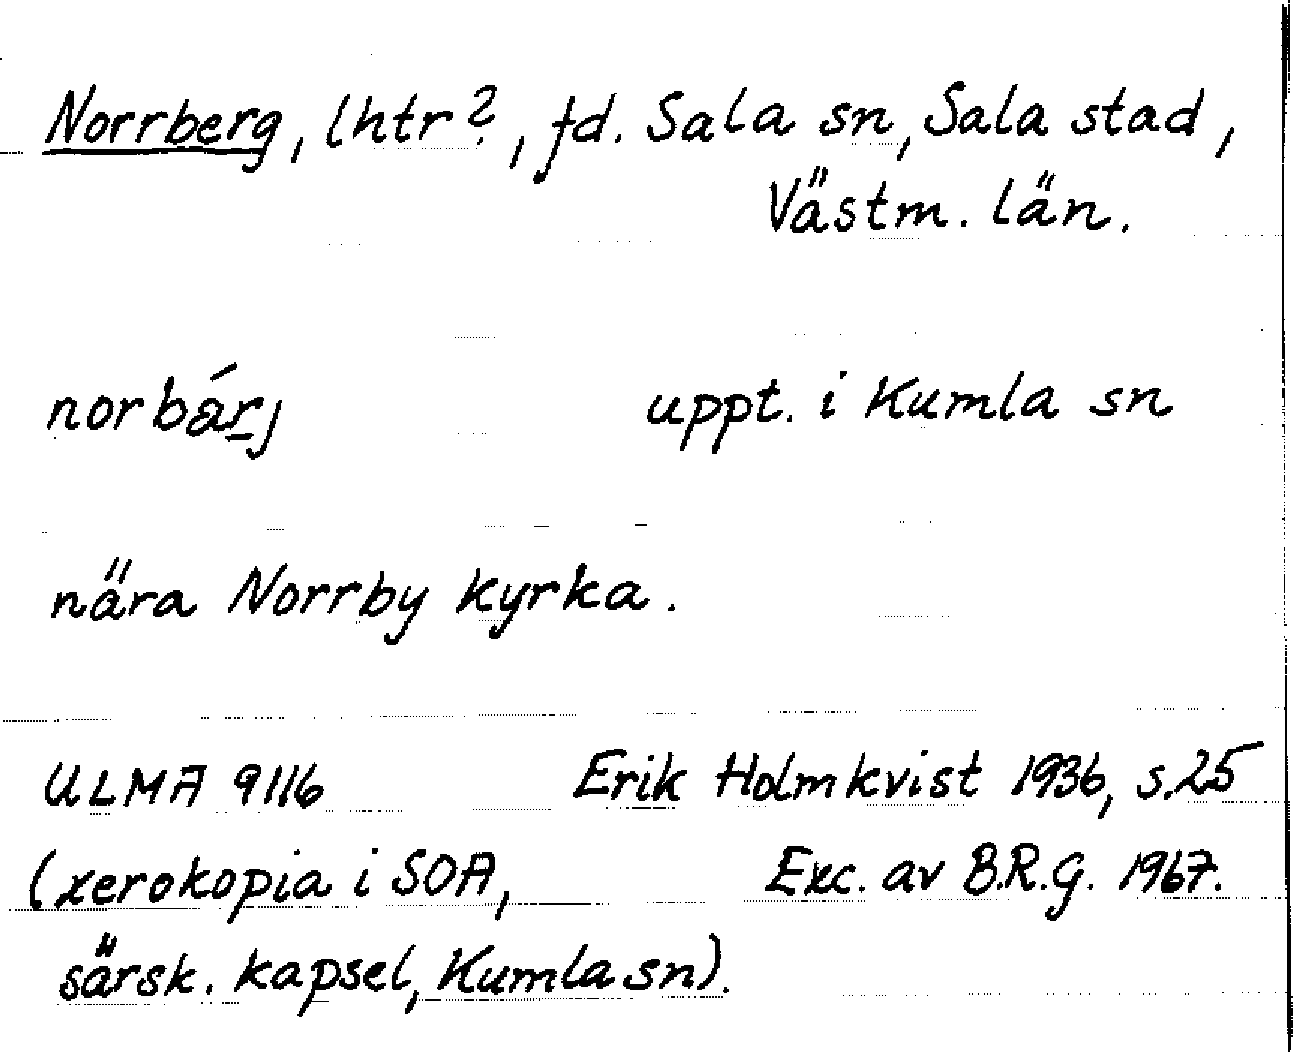 Norrberg, lhtr?, fd. Sala sn, Sala stad,
Västm. län.
norbárj uppt. i Kumla sn
nära Norrby kyrka.
ULMA 9116 Erik Holmkvist 1936, s.25
(xerokopia i SOA, Exc. av B.R.G. 1967.
särsk. kapsel, Kumla sn).